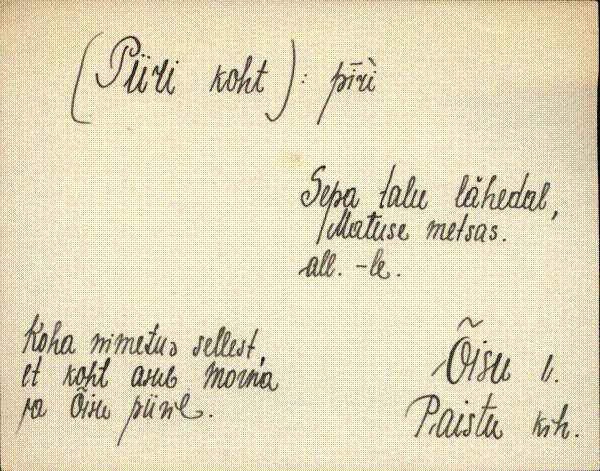 (Püri koht) : pīrì
Sepa talu lähedal,
Matuse metsas.
all. -le.
Koha nimetus sellest,
et koht asub Morna
ja Õisu piiril.
Õisu v.
Paistu kih.